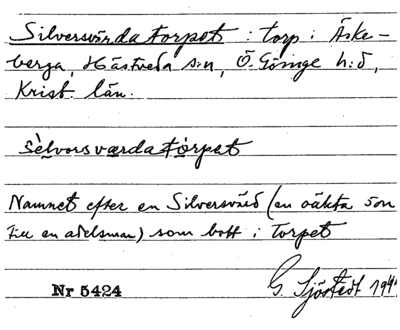 Silversvärda torpet : torp i Äske-
berga, Hästveda s:n, Ö. Göinge h:d,
Krist. län.
sèlvorsvarda tòrpet
Namnet efter en Silversvärd (en oäkta son
till en adelsman) som bott i torpet
Nr 5424 G. Sjöstedt